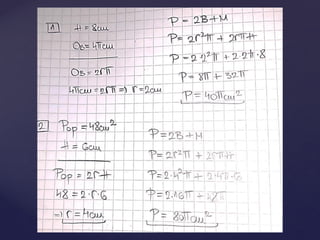 1) H = 8cm
O_B = 4πcm
O_B = 2rπ
4πcm = 2rπ ⇒ r = 2cm
P = 2B+M
P = 2r²π + 2rπH
P = 2·2²π + 2·2π·8
P = 8π + 32π
P = 40πcm²
2) Pop = 48cm²
H = 6cm
Pop = 2rH
48 = 2·r·6
⇒ r = 4cm
P = 2B+M
P = 2r²π + 2rπH
P = 2·4²π + 2·4π·6
P = 2·16π + 48π
P = 80πcm²